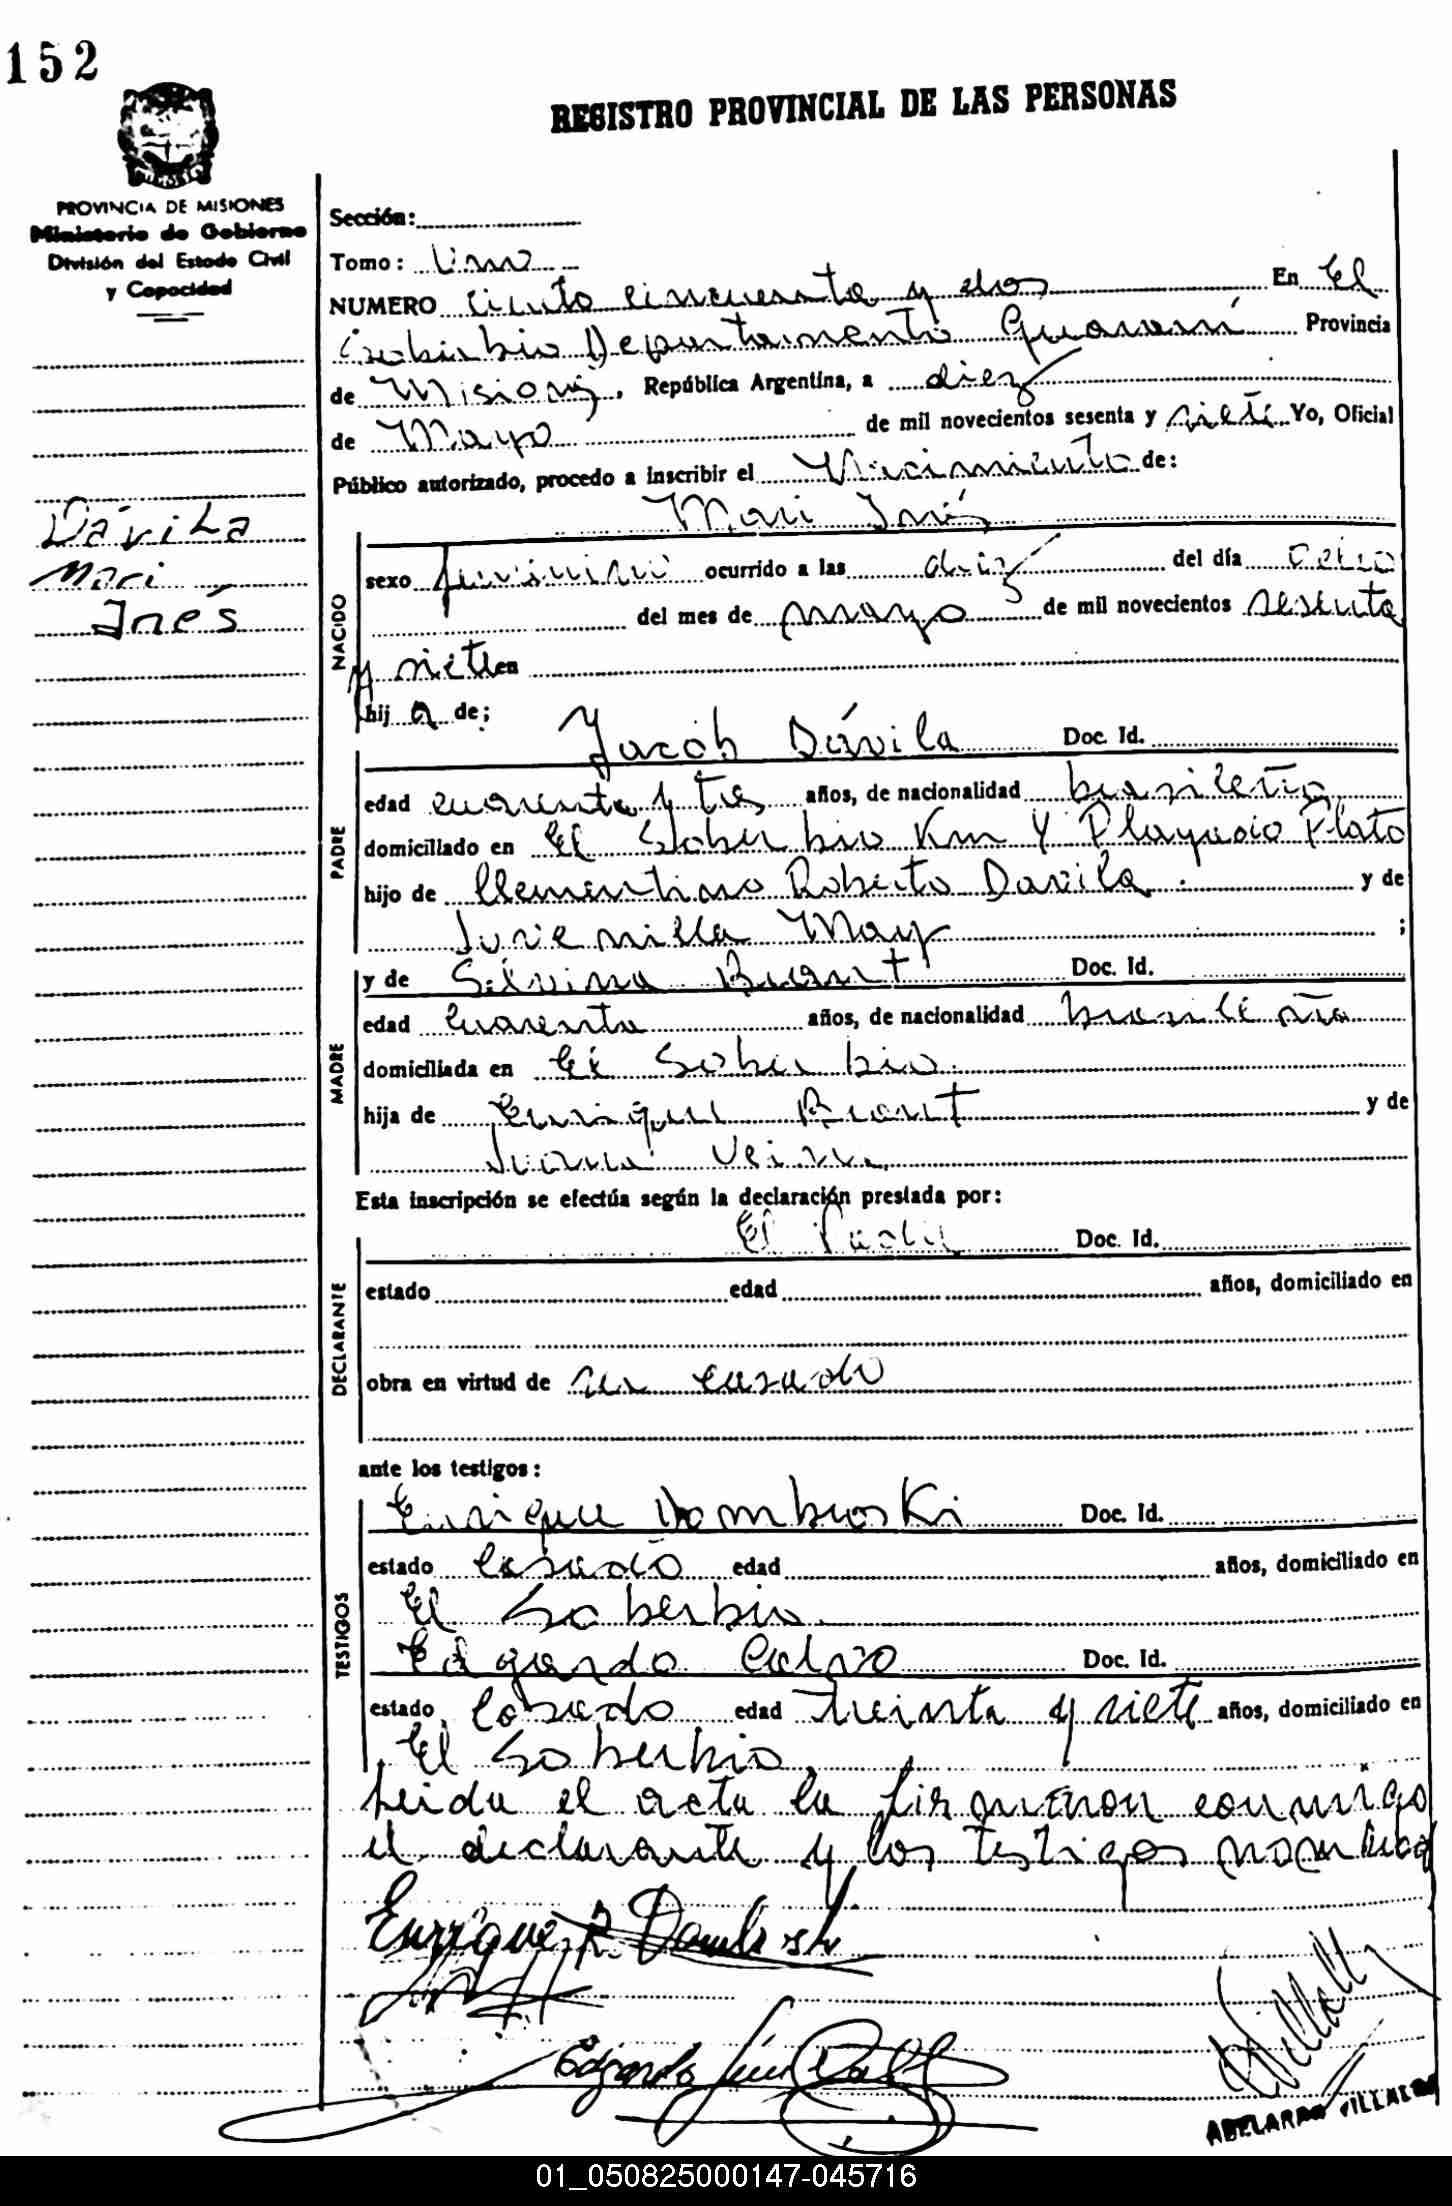 152
REGISTRO PROVINCIAL DE LAS PERSONAS
PROVINCIA DE MISIONES
Ministerio de Gobierno
División del Estado Civil
y Capacidad
Dávila
Mari
Inés
Sección:
Tomo: Uno
NUMERO ciento cincuenta y dos En El
Soberbio Departamento Guaraní Provincia
de Misiones, República Argentina, a diez
de Mayo de mil novecientos sesenta y siete Yo, Oficial
Público autorizado, procedo a inscribir el Nacimiento de:
Mari Inés
NACIDO
sexo femenino ocurrido a las diez del día ocho
del mes de mayo de mil novecientos sesenta
y siete en
hij a de;
PADRE
Jacob Dávila Doc. Id.
edad cuarenta y tres años, de nacionalidad brasileña
domiciliado en El Soberbio Km Y Plato
hijo de Clementino Roberto Davila y de
May ;
MADRE
y de Silvina Brant Doc. Id.
edad Cuarenta años, de nacionalidad brasileña
domiciliada en El Soberbio.
hija de Enrique Brant y de
Juana
Esta inscripción se efectúa según la declaración prestada por:
DECLARANTE
El Padre Doc. Id.
estado edad años, domiciliado en
obra en virtud de ser casado
ante los testigos:
TESTIGOS
Enrique Dombroski Doc. Id.
estado casado edad años, domiciliado en
El Soberbio.
Edgardo Calvo Doc. Id.
estado Casado edad treinta y siete años, domiciliado en
El Soberbio,
Leida el acta la firmaron conmigo
el declarante y los testigos nombrados
Enrique R. Dombroski
Edgardo
ABELARDO VILLALBA
01_050825000147-045716